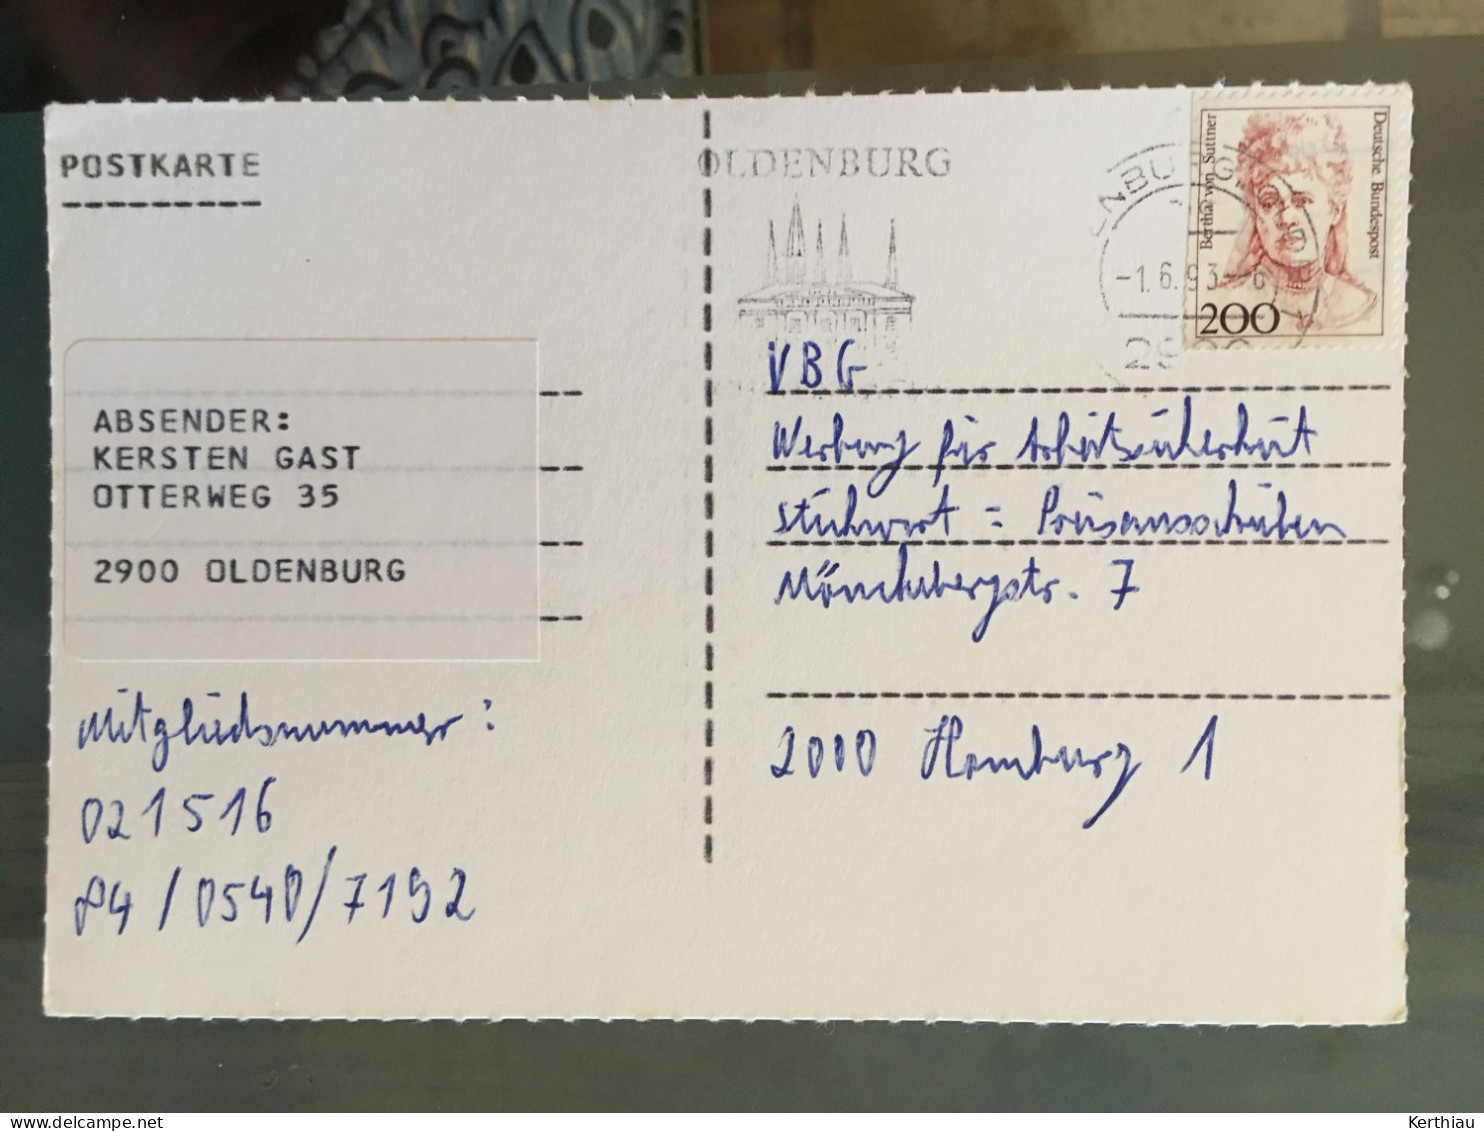 POSTKARTE
OLDENBURG
-1.6.93-6
Bertha von Suttner
Deutsche Bundespost
200
ABSENDER:
KERSTEN GAST
OTTERWEG 35
2900 OLDENBURG
Mitgliedsnummer:
021516
84/0540/7192
VBG
Werbung für Arbeitssicherheit
Stichwort = Preisausschreiben
Mönckebergstr. 7
2000 Hamburg 1
Kerthiau